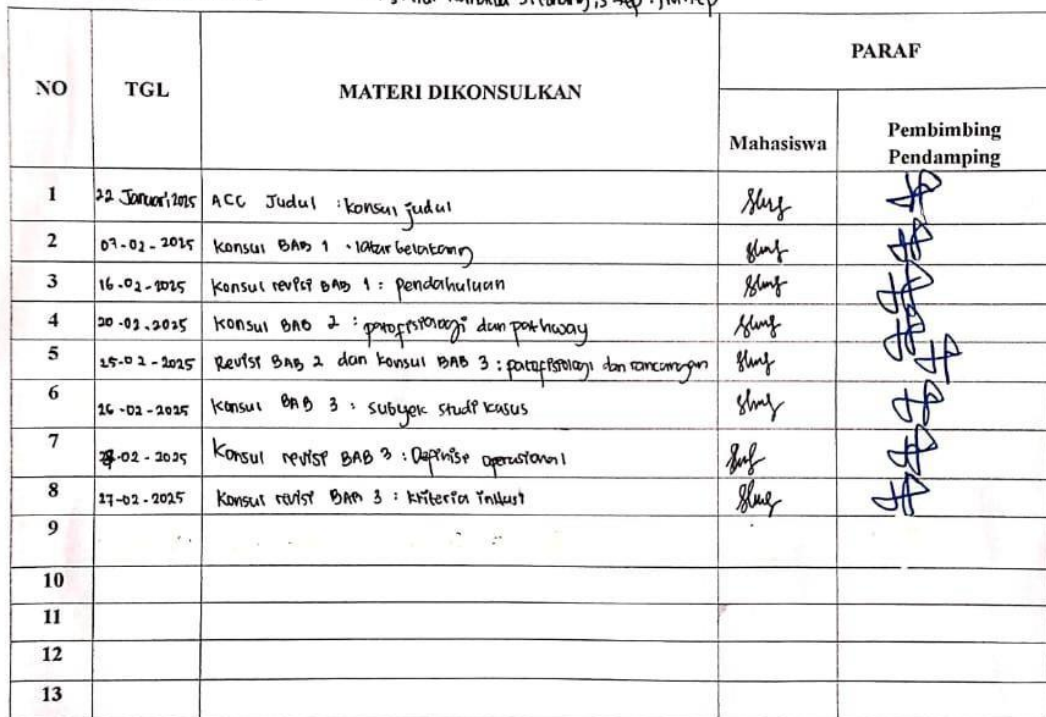 PARAF
NO TGL MATERI DIKONSULKAN
Mahasiswa Pembimbing
Pendamping
1 22 Januari, 2025 ACC Judul : konsul judul
2 07-02-2025 Konsul BAB 1 : latar belakang
3 16-02-2025 Konsul revisi BAB 1 : pendahuluan
4 20-02-2025 Konsul BAB 2 : patofisiologi dan pathway
5 25-02-2025 Revisi BAB 2 dan konsul BAB 3 : patofisiologi dan rancangan
6 26-02-2025 Konsul BAB 3 : subyek studi kasus
7 -02-2025 Konsul revisi BAB 3 : Definisi operasional
8 27-02-2025 Konsul revisi BAB 3 : kriteria inklusi
9
10
11
12
13